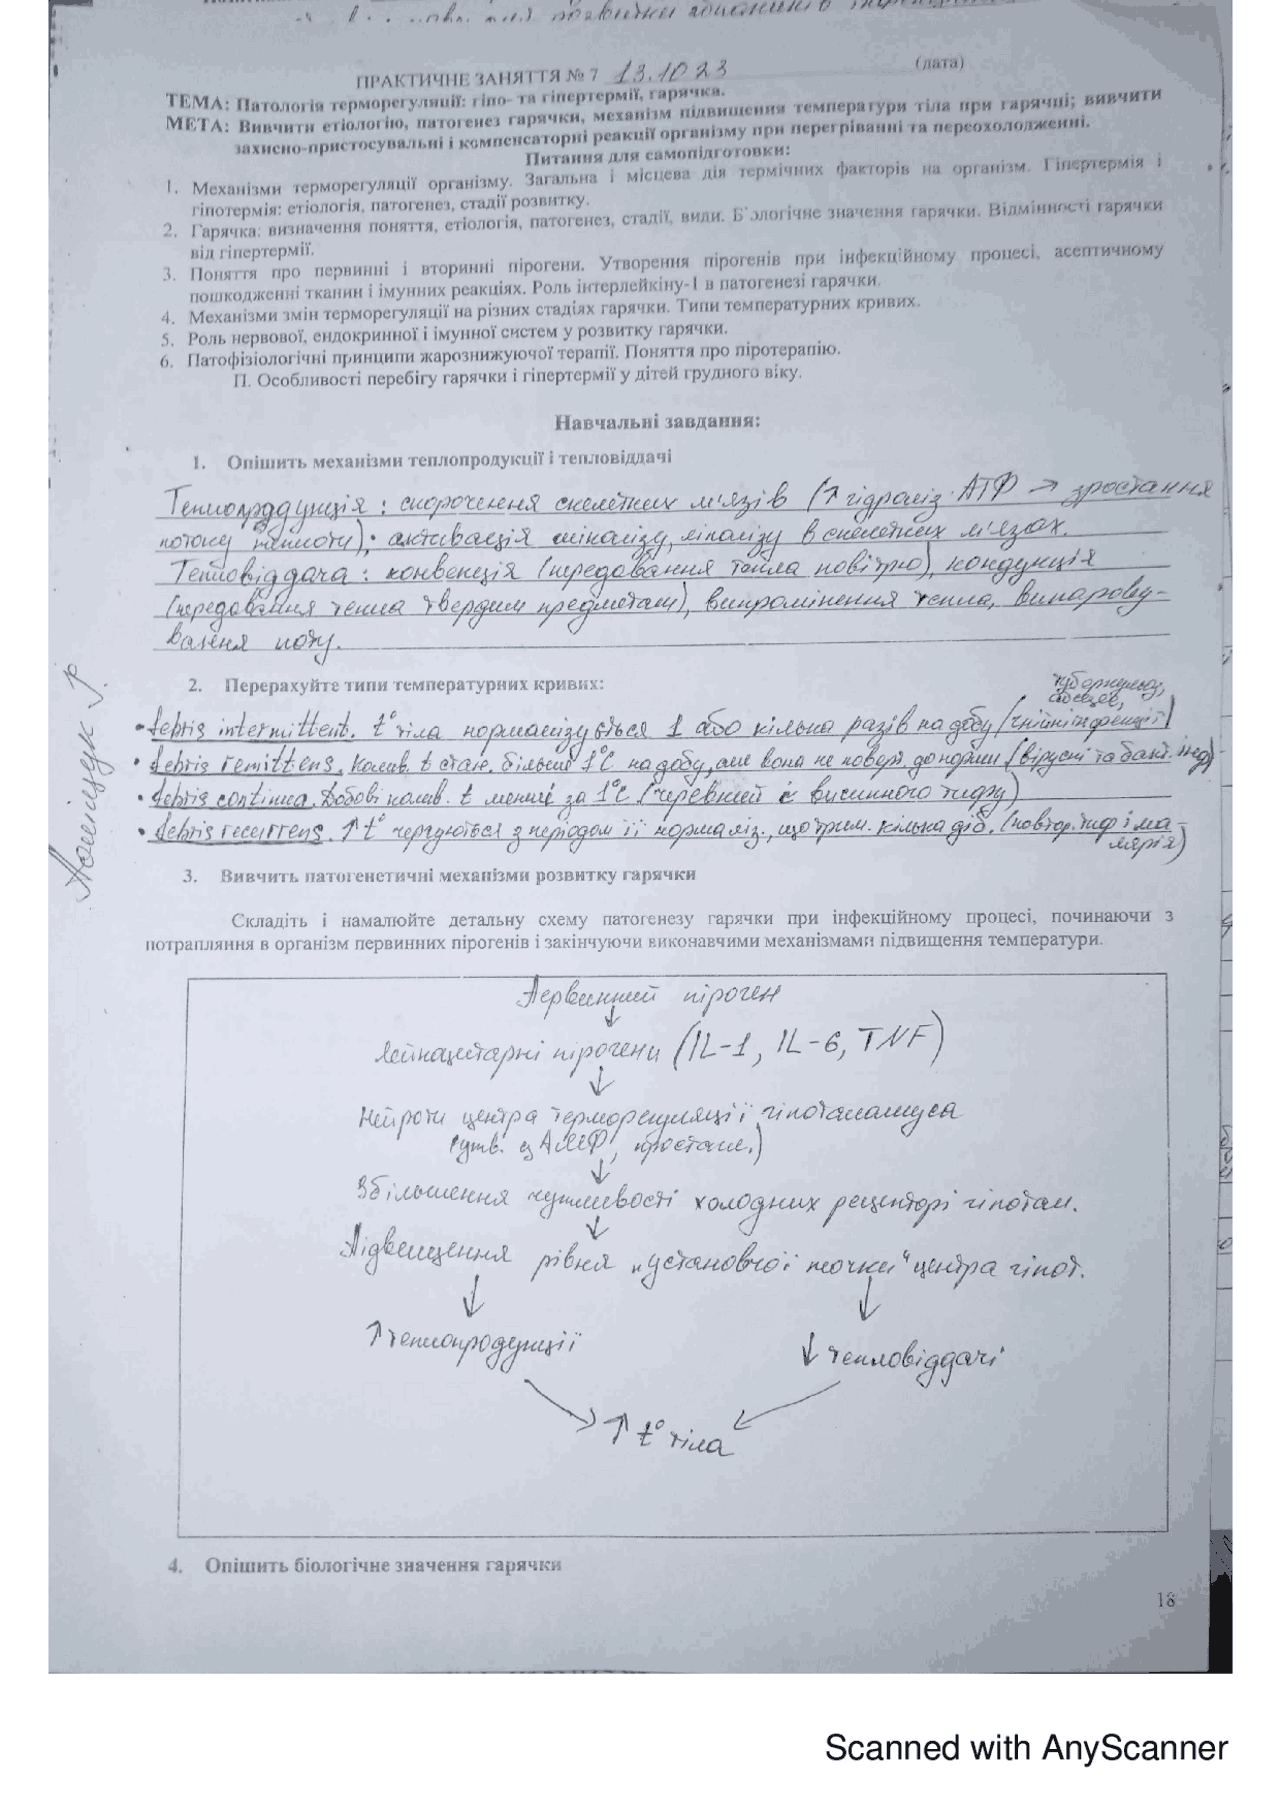 розвитку
ПРАКТИЧНЕ ЗАНЯТТЯ № 7 13.10 23
(дата)
ТЕМА: Патологія терморегуляції: гіпо- та гіпертермії, гарячка.
МЕТА: Вивчити етіологію, патогенез гарячки, механізм підвищення температури тіла при гарячці; вивчити
захисно-пристосувальні і компенсаторні реакції організму при перегріванні та переохолодженні.
Питання для самопідготовки:
1. Механізми терморегуляції організму. Загальна і місцева дія термічних факторів на організм. Гіпертермія і
гіпотермія: етіологія, патогенез, стадії розвитку.
2. Гарячка: визначення поняття, етіологія, патогенез, стадії, види. Біологічне значення гарячки. Відмінності гарячки
від гіпертермії.
3. Поняття про первинні і вторинні пірогени. Утворення пірогенів при інфекційному процесі, асептичному
пошкодженні тканин і імунних реакціях. Роль інтерлейкіну-1 в патогенезі гарячки.
4. Механізми змін терморегуляції на різних стадіях гарячки. Типи температурних кривих.
5. Роль нервової, ендокринної і імунної систем у розвитку гарячки.
6. Патофізіологічні принципи жарознижуючої терапії. Поняття про піротерапію.
П. Особливості перебігу гарячки і гіпертермії у дітей грудного віку.
Навчальні завдання:
1. Опішить механізми теплопродукції і тепловіддачі
Теплопродукція: скорочення скелетних м'язів (↑ гідроліз АТФ → зростання
потоку теплоти); активація гліколізу, ліполізу в скелетних м'язах.
Тепловіддача: конвекція (передавання тепла повітрю), кондукція
(передавання тепла твердим предметам), випромінення тепла, випарову-
вання поту.
2. Перерахуйте типи температурних кривих:
туберкульоз,
абсцес,
• febris intermittent. t° тіла нормалізується 1 або кілька разів на добу (гнійні інфекції)
• febris remittens. Колив. t стан. більше 1°С на добу, але вона не поверт. до норми (вірусні та бакт. інф)
• febris continua. Добові колив. t менші за 1°С (черевний і висипного тифу)
• febris recurrens. ↑ t° чергуються з періодом її нормаліз., що трим. кілька діб. (повтор. тиф і ма-
лярія)
3. Вивчить патогенетичні механізми розвитку гарячки
Складіть і намалюйте детальну схему патогенезу гарячки при інфекційному процесі, починаючи з
потрапляння в організм первинних пірогенів і закінчуючи виконавчими механізмами підвищення температури.
Первинний піроген
↓
Лейкоцитарні пірогени (IL-1, IL-6, TNF)
↓
Нейрони центра терморегуляції гіпоталамуса
(утв. цАМФ, простагл.)
↓
Збільшення чутливості холодних рецепторі гіпотал.
↓
Підвищення рівня „установчої точки" центра гіпот.
↓ ↓
↑ теплопродукції ↓ тепловіддачі
↑ t° тіла
4. Опішить біологічне значення гарячки
18
Scanned with AnyScanner